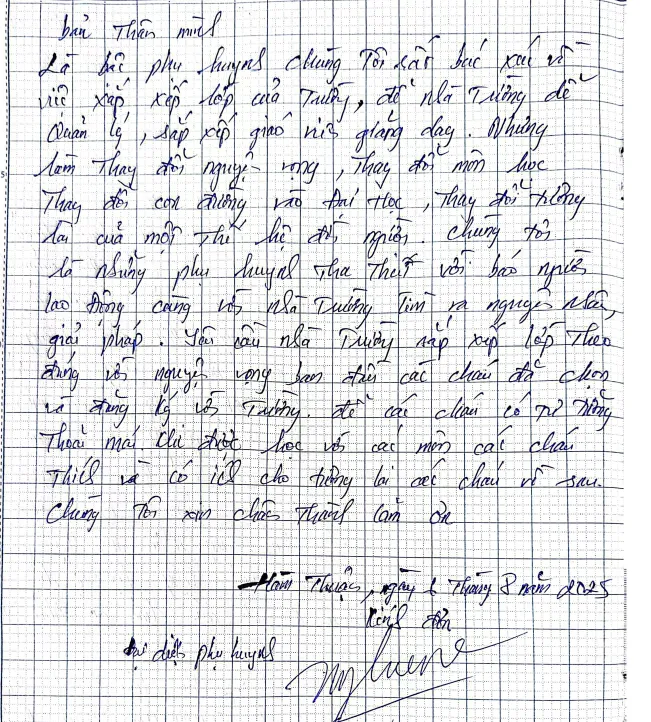 bản Thân mình
Là bậc phụ huynh chúng Tôi rất bức xúc về
việc xắp xếp lớp của Trường, để nhà Trường dễ
Quản lý, sắp xếp giáo viên giảng dạy. Nhưng
làm Thay đổi nguyện vọng, Thay đổi môn học
Thay đổi con đường vào Đại Học, Thay đổi tương
lai của một Thế hệ đời người. Chúng tôi
là những phụ huynh Tha Thiết với báo người
lao động cùng với nhà Trường Tìm ra nguyên nhân,
giải pháp. Yêu cầu nhà Trường sắp xếp lớp Theo
đúng với nguyện vọng ban đầu các cháu đã chọn
và đăng ký với Trường. để các cháu có tư tưởng
Thoải mái khi được học với các môn các cháu
Thích và có ích cho tương lai các cháu về sau.
Chúng Tôi xin chân Thành cảm ơn
Hàm Thuận, ngày 6 Tháng 8 năm 2025
Kính đơn
Đại diện phụ huynh